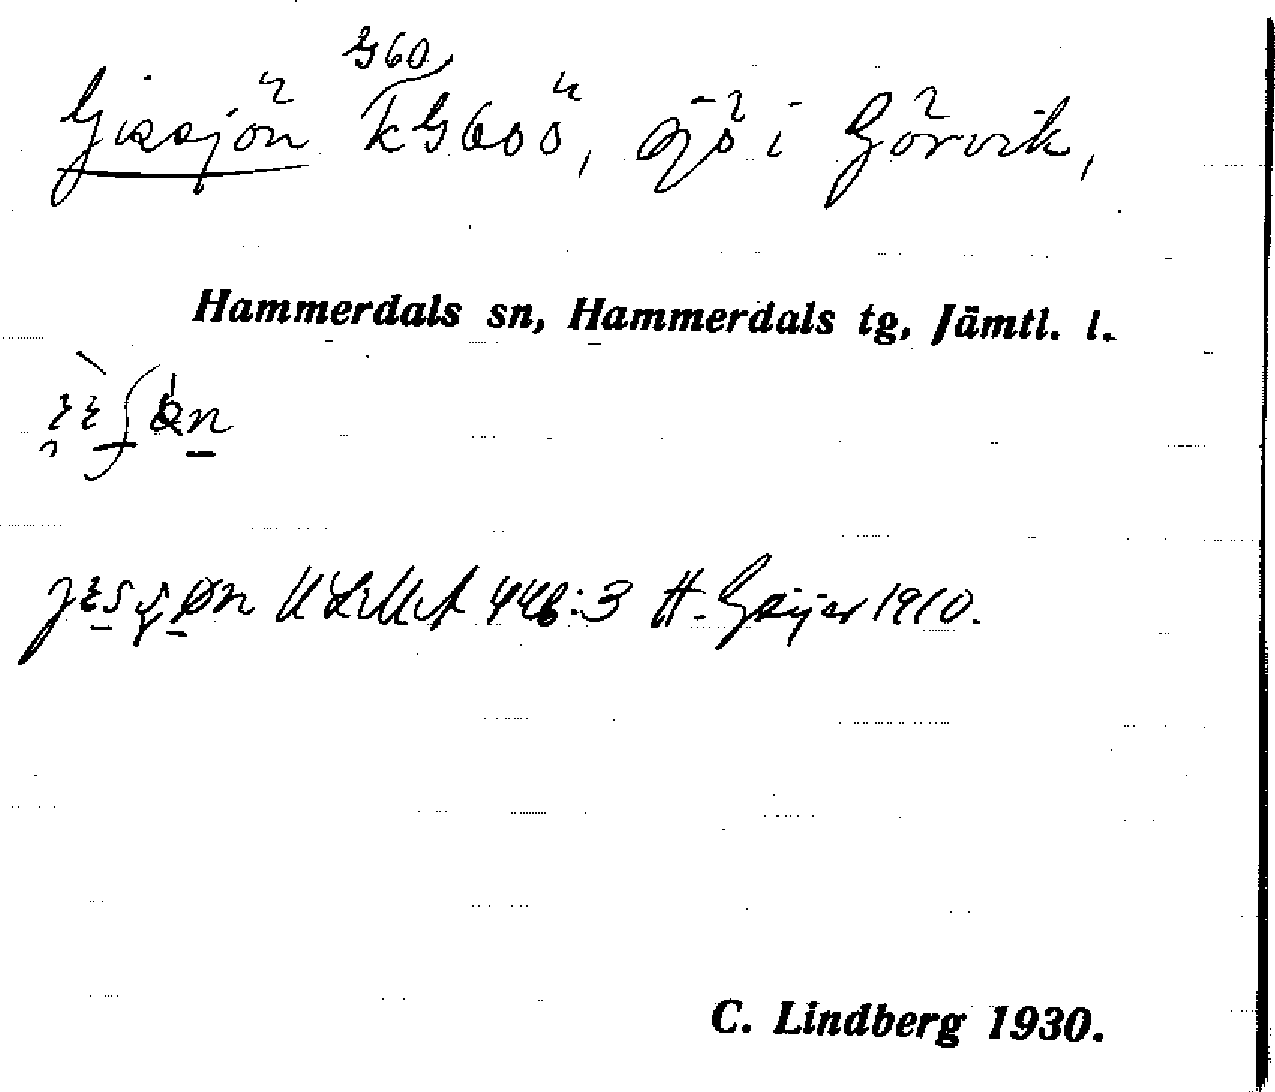 G60
Gissjön kG600, sjö i Görvik,
Hammerdals sn, Hammerdals tg, Jämtl. l.
ULMA 446:3 H. Geijer 1910.
C. Lindberg 1930.